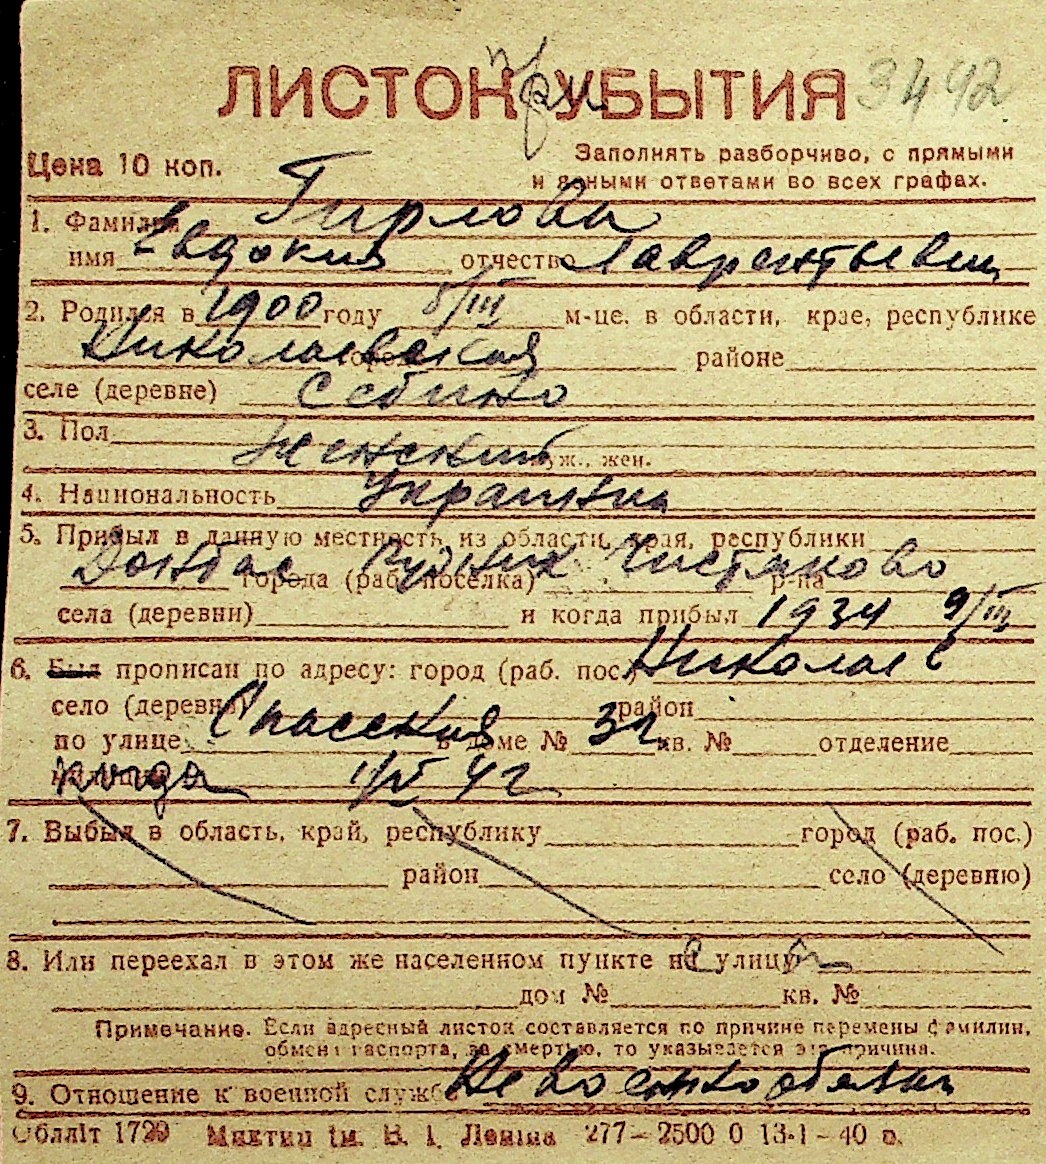 ЛИСТОК при УБЫТИЯ 3492
Цена 10 коп.
Заполнять разборчиво, с прямыми
и ясными ответами во всех графах.
1. Фамилия Гирлова
имя Евдокия отчество Лаврентьевна
2. Родился в 1900 году 5/III м-це, в области, крае, республике
Николаевская городе районе
селе (деревне) Себино
3. Пол женский муж., жен.
4. Национальность Украинка
5. Прибыл в данную местность из области, края, республики
Донбас Рудник Чистяково города (раб. поселка) р-на
села (деревни) и когда прибыл 1934 9/III
6. Был прописан по адресу: город (раб. пос.) Николаев
село (деревня) район
по улице Спасская в доме № 32 кв. № отделение
милиции 1/IV 42
7. Выбыл в область, край, республику город (раб. пос.)
район село (деревню)
8. Или переехал в этом же населенном пункте на улицу
дом № кв. №
Примечание. Если адресный листок составляется по причине перемены фамилии,
обмена паспорта, за смертью, то указывается эта причина.
9. Отношение к военной службе Невоеннообязан
Обллiт 1729 Миктип iм. В. I. Ленiна 277—2500 0 13-1—40 р.